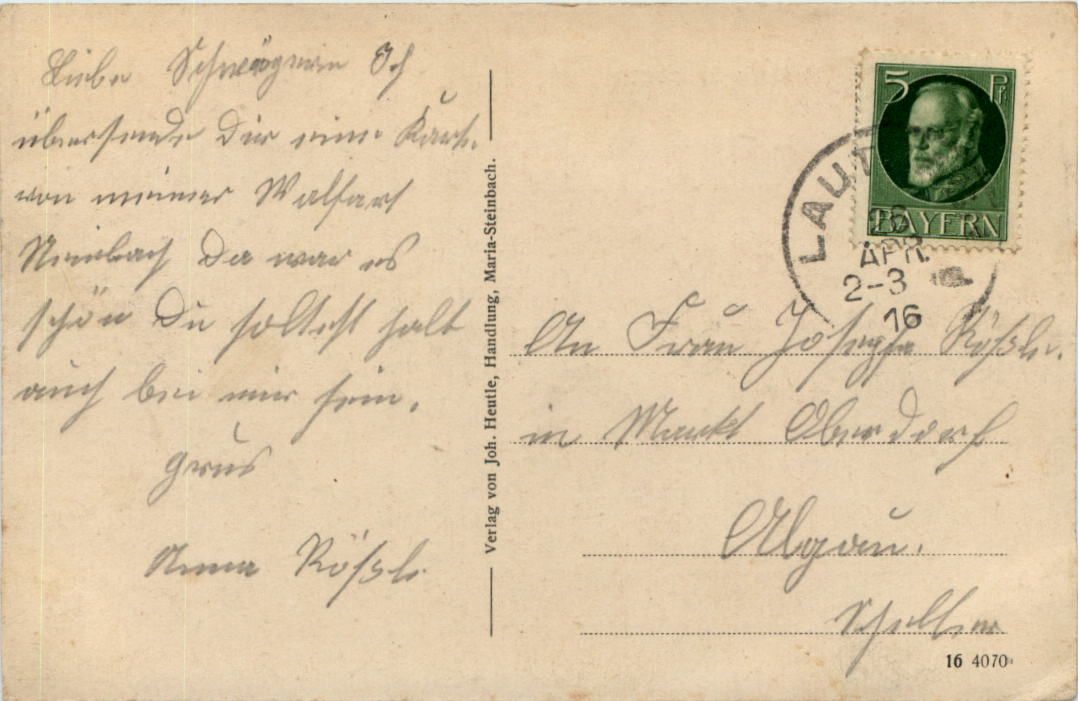 Liebe Schwägerin Ich
übersende dir eine Karte
von meiner Walfart
Steinbach Da war es
schön Du soltest halt
auch bei mir sein.
grus
Anna Rößle
Verlag von Joh. Heutle, Handlung, Maria-Steinbach.
5 Pf.
BAYERN
LAUT
APR.
2-3
16
An Frau Josepha Rößle.
in Markt Oberdorf
Algäu.
16 4070